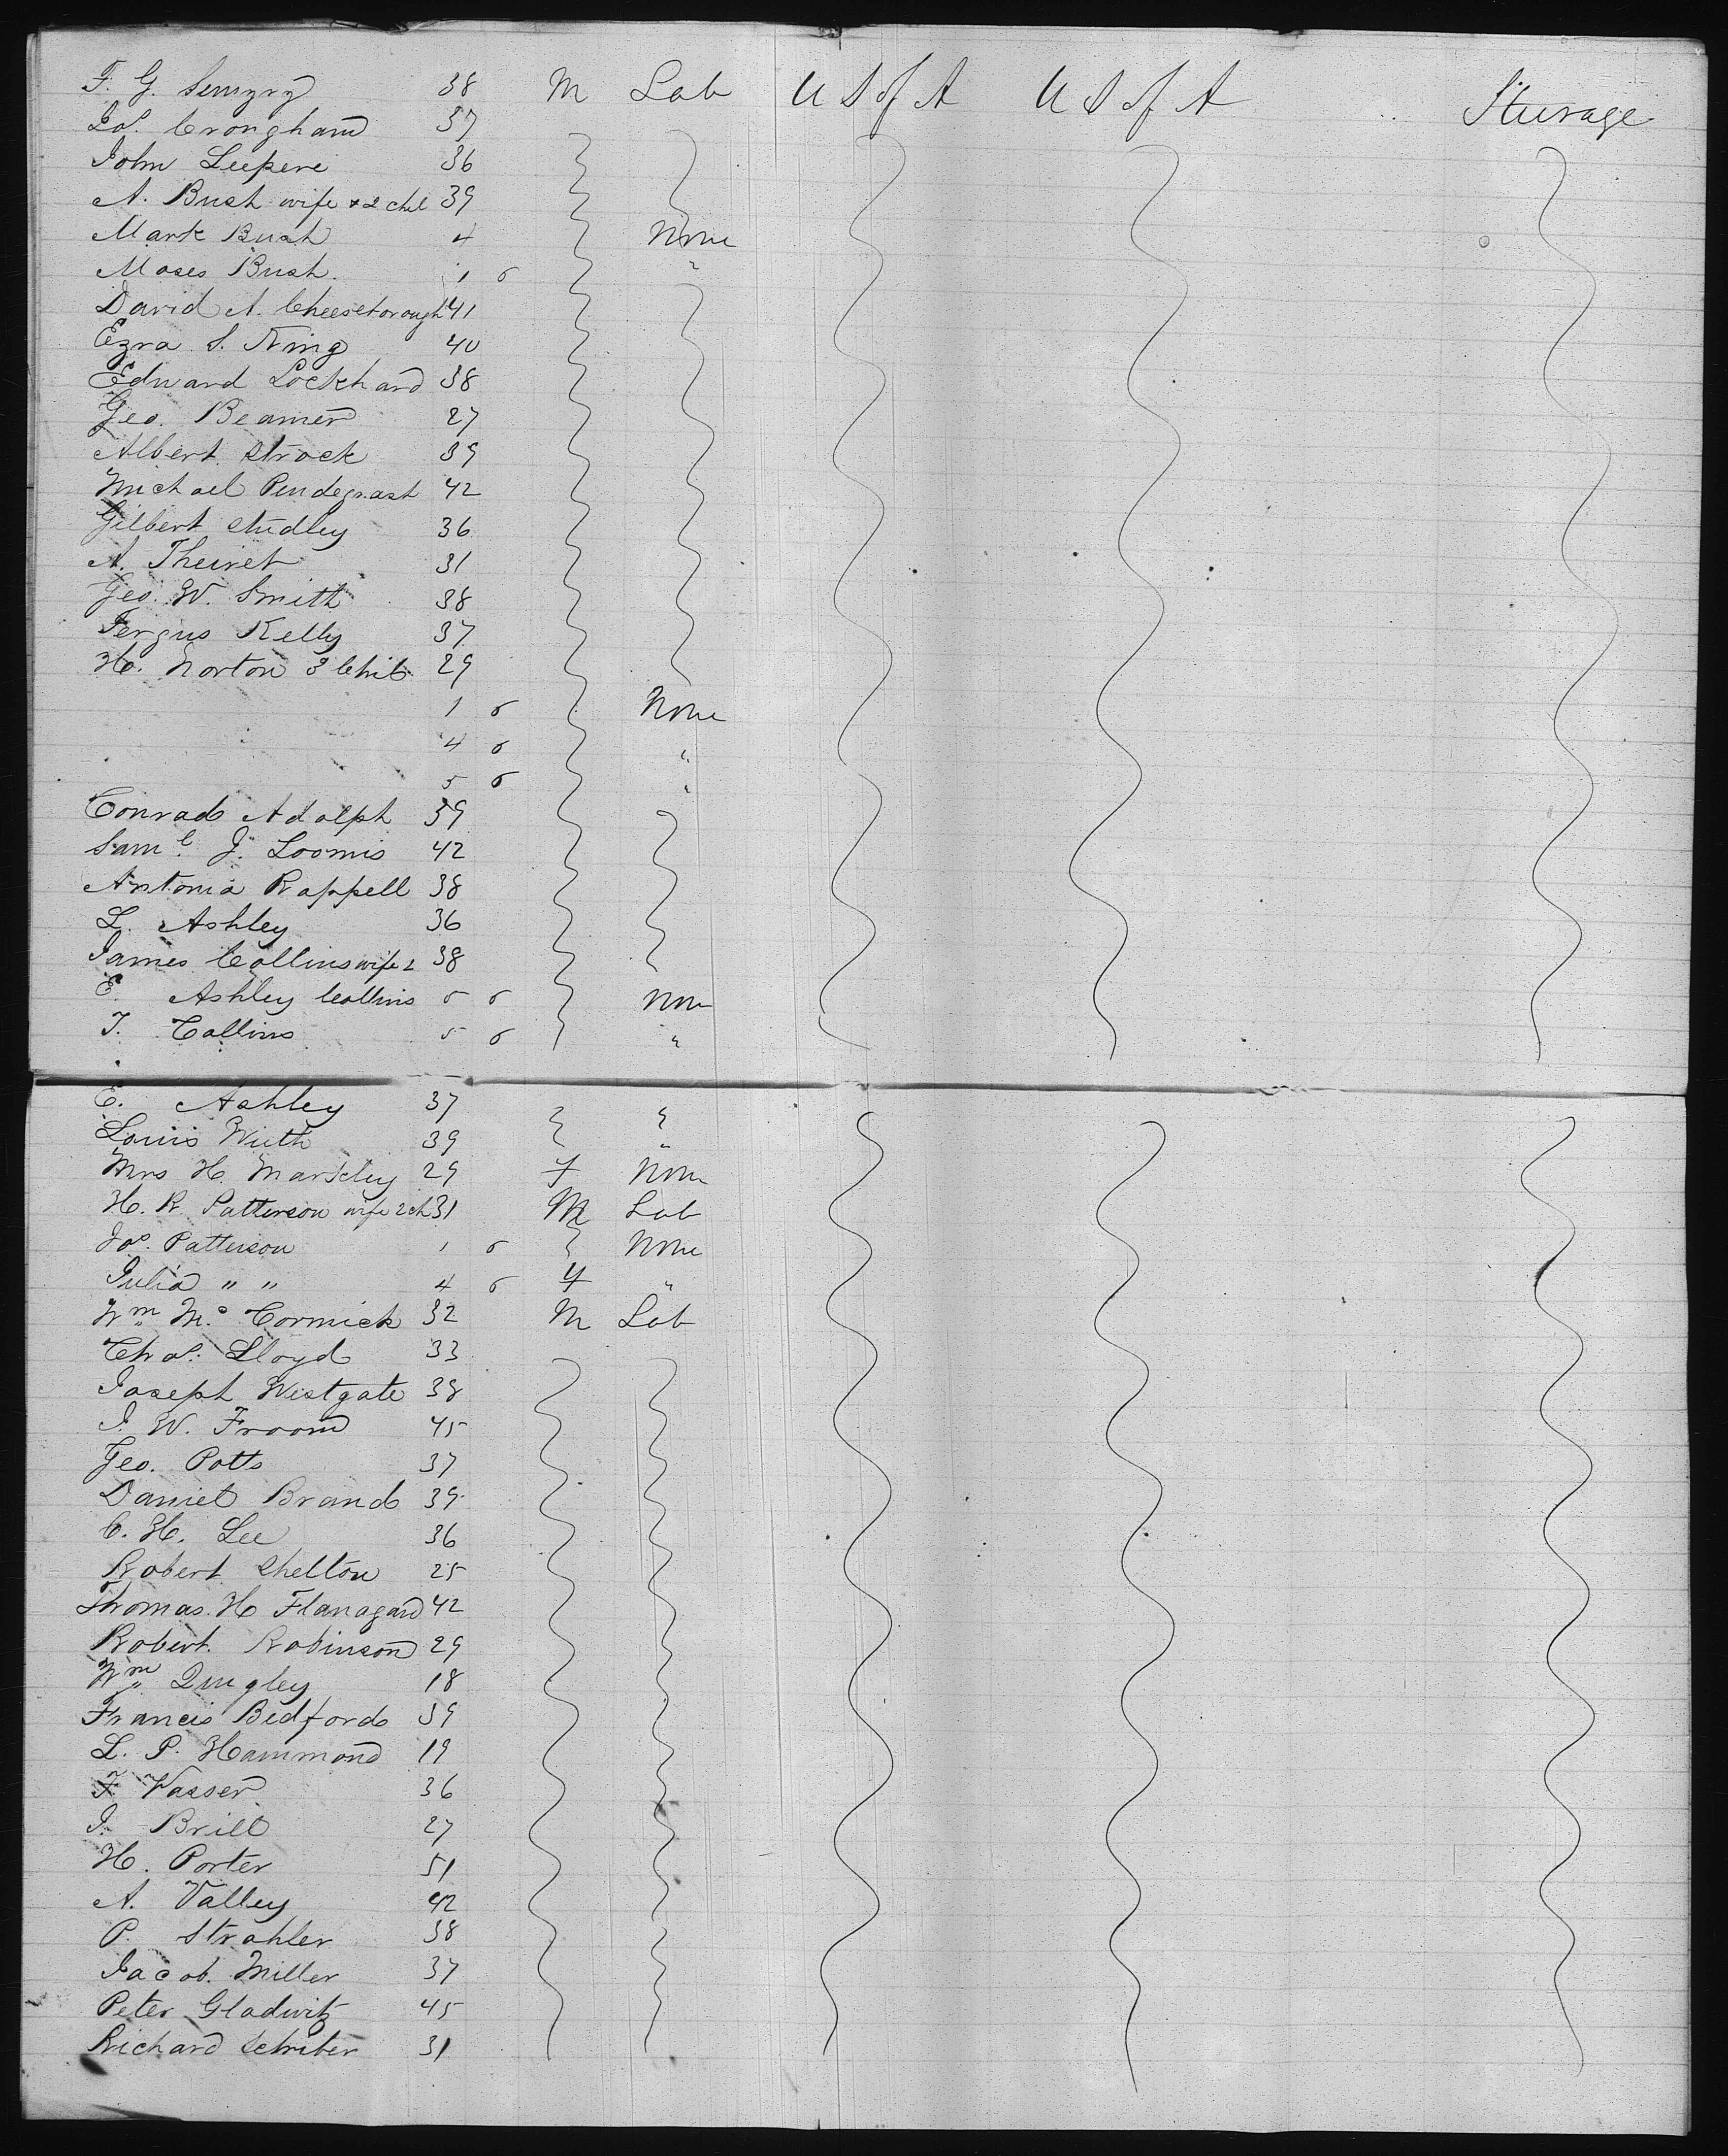 F. G. 38 M Lab U S of A U S of A Sturage
Jos. Cronghand 37
John Leepere 36
A. Bush wife & 2 chil 39
Mark Bush 4 None
Moses Bush. 1 6 "
David A. Cheesborough 41
Ezra S. King 40
Edward Lockhard 38
Geo. Beamer 27
Albert Strock 39
Michael Pendegrast 42
Gilbert Studley 36
A. Theivet 31
Geo. W. Smith 38
Fergus Kelly 37
H. Norton 3 Chil 29
1 6 None
4 6 "
5 6 "
Conrad Adolph 39
Saml. J. Loomis 42
Antonia Rappell 38
L. Ashley 36
James Collins wife 2 38
E. Ashley Collins 5 6 None
T. Collins 5 6 "
E. Ashley 37 "
Louis Wuth 39 "
Mrs H. Markley 29 f None
H. R. Patterson wife 2 ch 31 M Lab
Jos. Patterson 1 6 None
Julia " " 4 6 f "
Wm Mc Cormick 32 M Lab
Chas. Lloyd 33
Joseph Westgate 38
J. W. Froom 45
Geo. Potts 37
Daniel Brand 39
C. H. Lee 36
Robert Shelton 25
Thomas H Flanagan 42
Robert Robinson 29
Wm Quigley 18
Francis Bedford 39
L. P. Hammond 19
F Vasser 36
J. Brill 27
H. Porter 51
A. Valley 42
P. Strahler 38
Jacob Miller 37
Peter Gladwitz 45
Richard Schriber 31